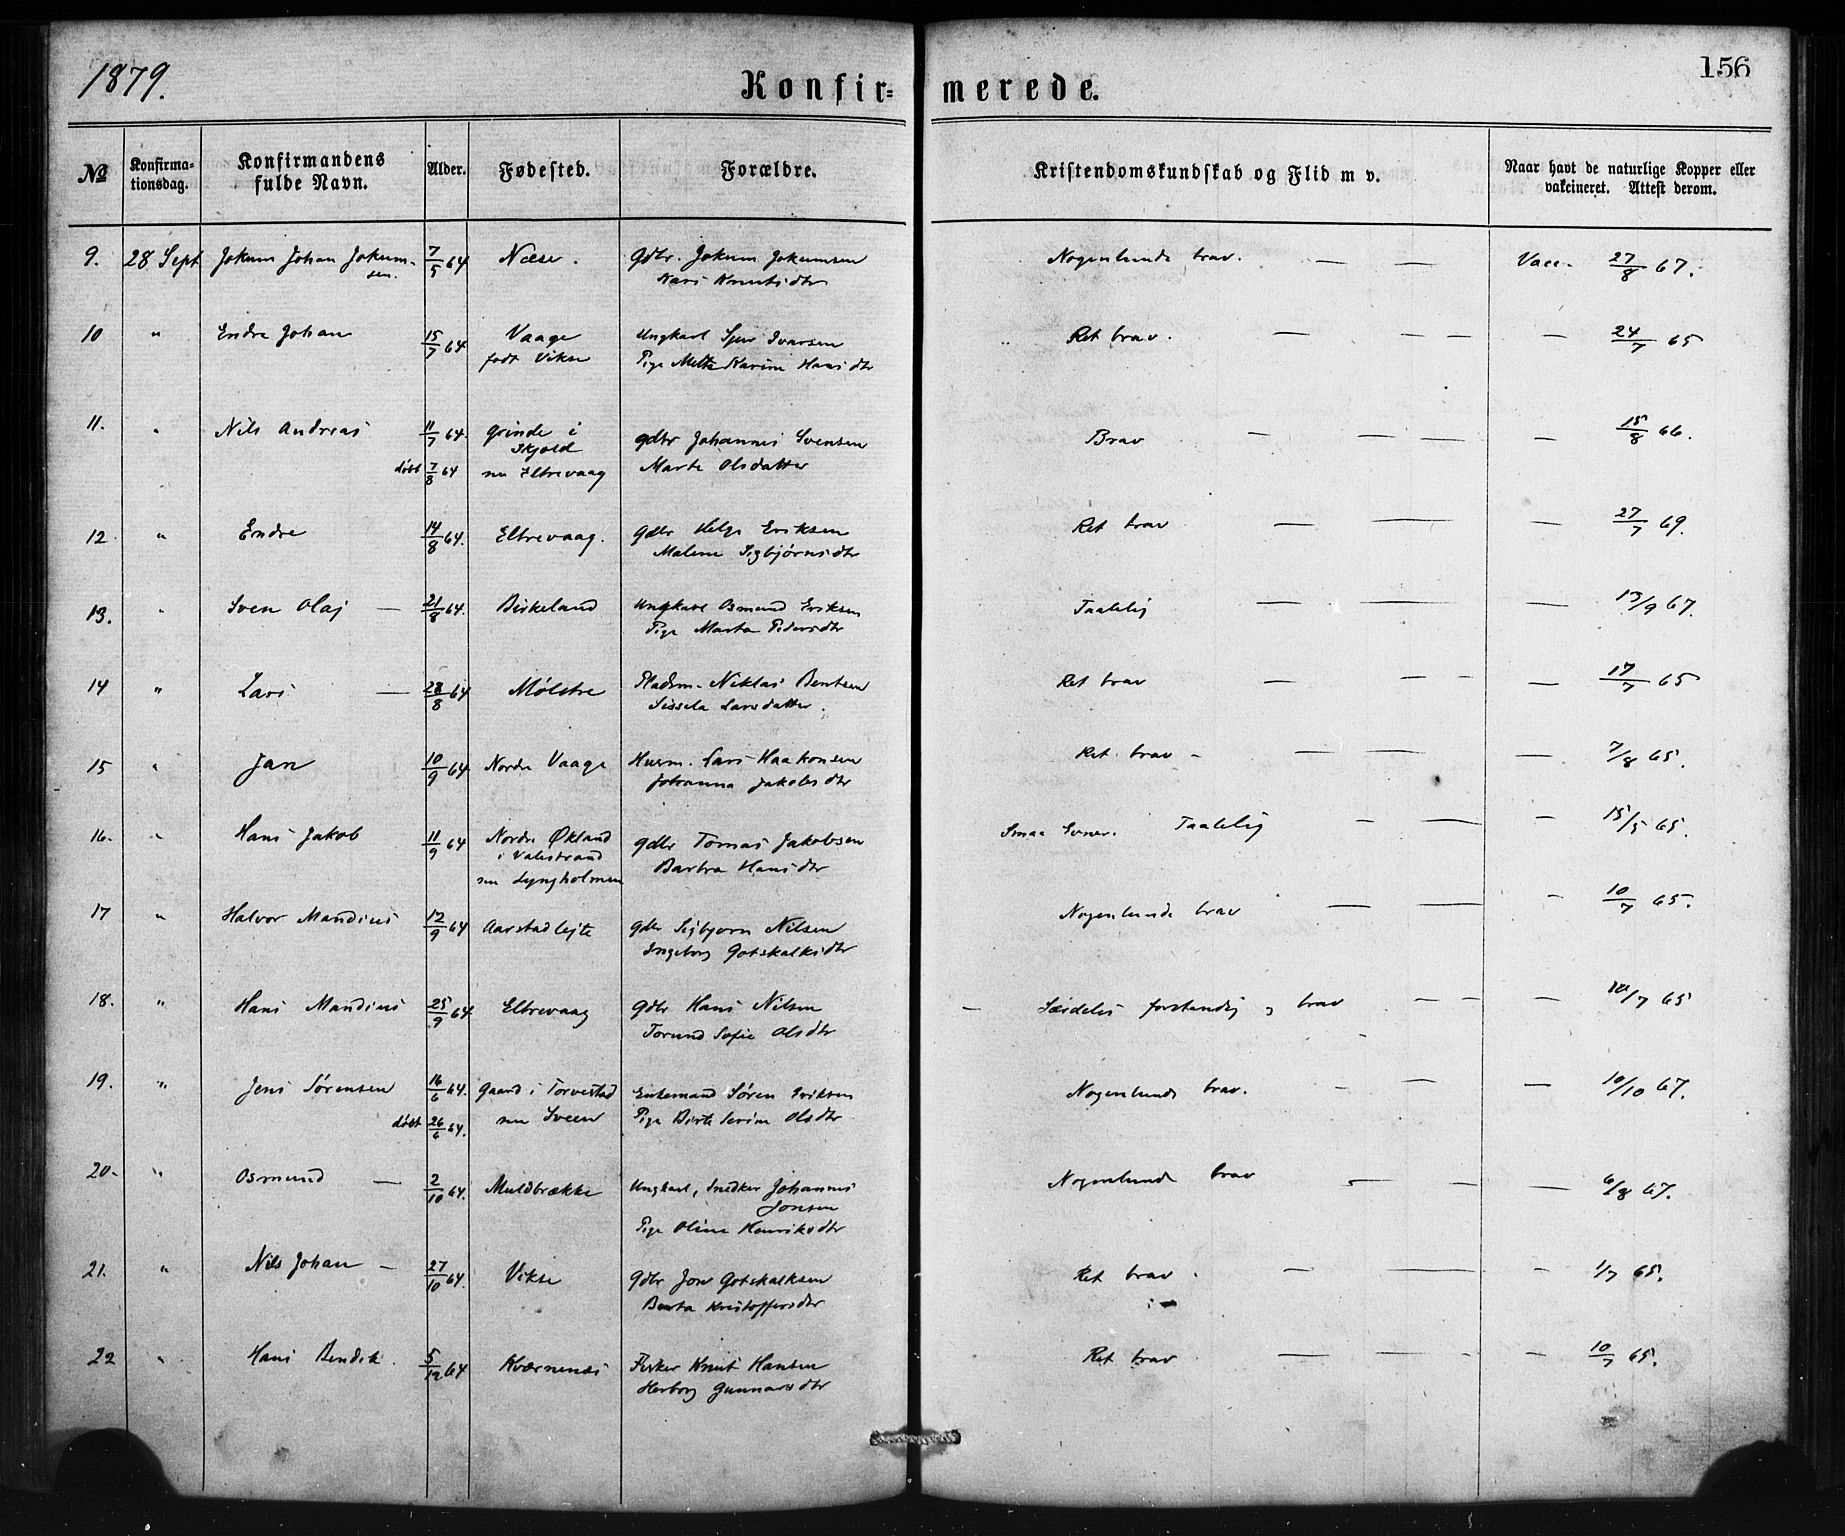 1879.
Konfir=
merede.
156
No
Konfirma-
tionsdag.
Konfirmandens
fulde Navn.
Alder.
Fødested.
Forældre.
Kristendomskundskab og Flid m v.
Naar havt de naturlige Kopper eller
vakcineret. Attest derom.
9. 28 Sept Jokum Johan Jokum- 7/5 64 Næse. Gdbr. Jokum Jokumsen Nogenlunde brav. — — Vacc. 27/8 67.
sen. Kari Knutsdtr
10 " Endre Johan 15/7 64 Vaage Ungkarl Sjur Ivarsen Ret brav. — — — — 24/7 65
født Vikse Pige Metta Karina Hansdtr
11. " Nils Andreas 11/7 64. Grinde i gdbr Johannes Svensen Brav — — — — 15/8 66.
Skjold
døbt 7/8 64 nu Eltrevaag Marta Olsdatter
12 " Endre 14/8 64. Eltrevaag. gdbr Helge Eriksen Ret brav — — — 27/7 69.
Malene Sigbjørnsdtr
13. " Sven Olaj — 21/8 64. Birkeland Ungkarl Osmund Eriksen Taalelig — — — 13/9 67.
Pige Marta Pedersdtr
14 " Lars — 28/8 64 Mølstre Pladsm. Niklas Bentsen Ret brav — — — — 17/7 65
Sissela Larsdatter.
15 " Jan 10/9 64 Nordre Vaage Husm. Lars Haakonsen Ret brav — — — — 7/8 65.
Johanna Jakobsdtr
16. " Hans Jakob 11/9 64 Nordre Økland gdbr Tomas Jakobsen Smaa Evner. Taalelig — — — 15/5 65.
i Valestrand Barbra Hansdtr
nu Lyngholmen
17 " Halvor Mandius 12/9 64 Aarstadlejte gdbr Sigbjørn Nilsen Nogenlunde brav — — — 10/7 65.
Ingeborg Gotskalksdtr
18. " Hans Mandius 25/9 64 Eltrevaag Gdbr Hans Nilsen — Særdeles forstandig og brav — — — 10/7 65
Torund Sofie Olsdtr
19. " Jens Sørensen 16/6 64. Gaard i Torvestad Enkemand Søren Eriksen Nogenlunde brav. — — — — 10/10 67.
døbt 26/6 64. nu Sveen Pige Birte Serine Olsdtr.
20. " Osmund — 2/10 64. Muldbrække Ungkarl, Snedker Johannes Nogenlunde brav — — — 6/8 67.
Jonsen
Pige Oline Henriksdtr
21. " Nils Johan — 27/10 64. Vikse Gdbr Jon Gotskalksen Ret brav. — — — — 1/7 65.
Berta Kristoffersdtr
22 " Hans Bendik. 5/12 64 Kværnenæs Fisker Knut Hansen Ret brav — — — — 10/7 65.
Herborg Gunnarsdtr